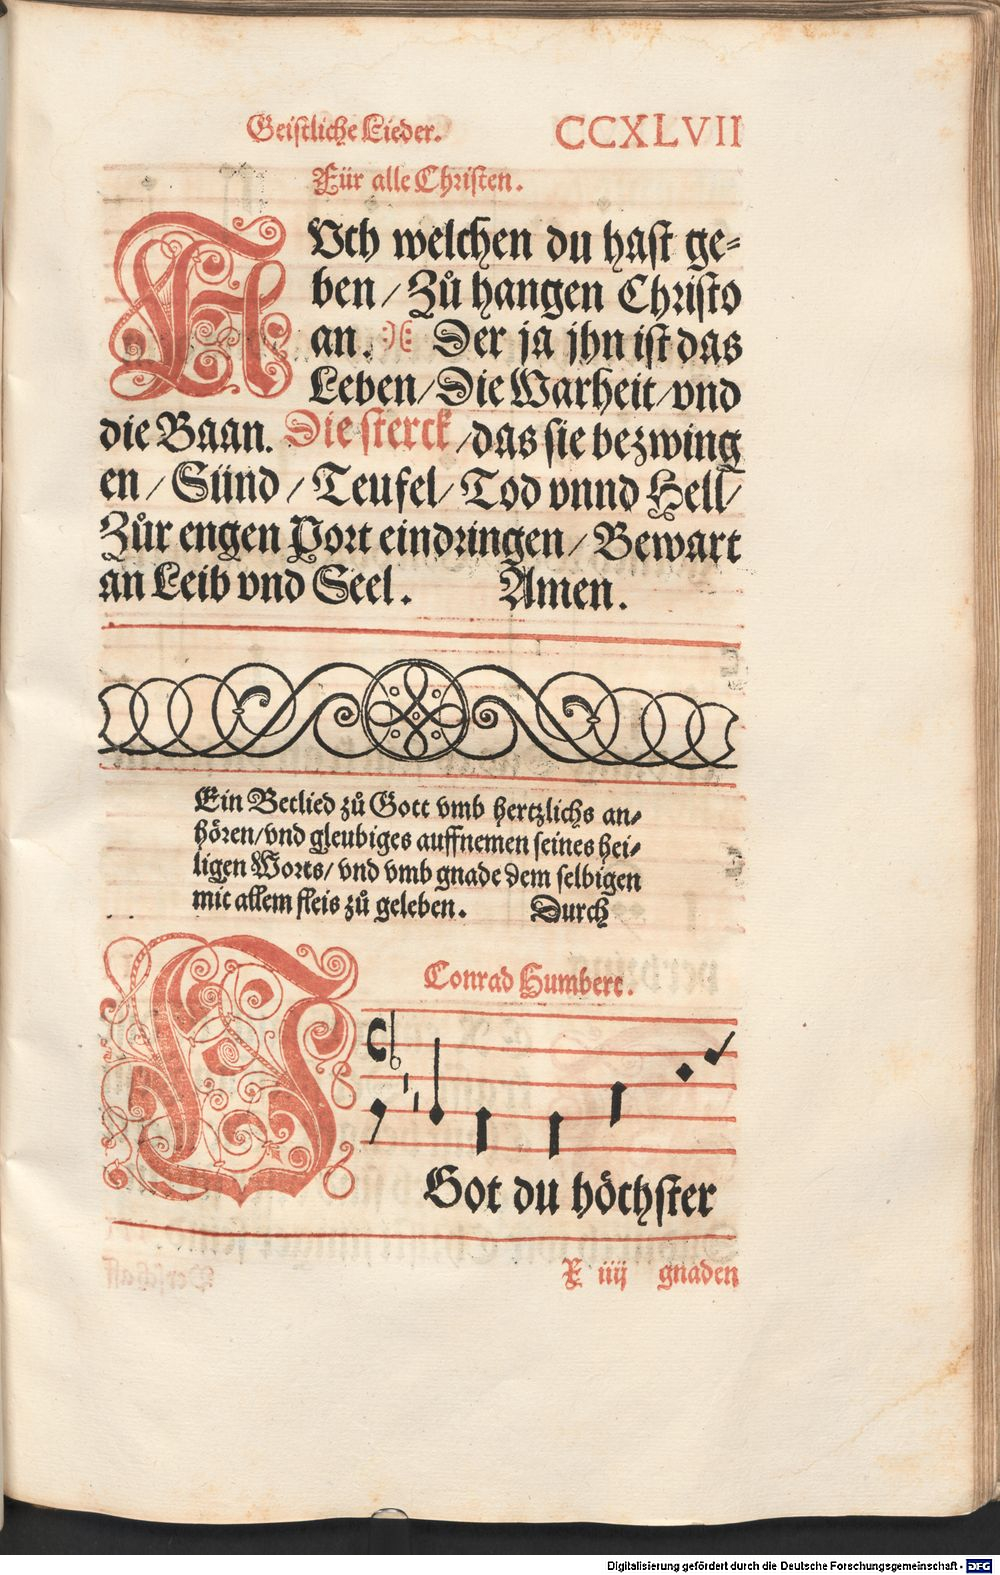 Geistliche Lieder. CCXLVII
Für alle Christen.
AVch welchen du hast ge⸗
ben / Zů hangen Christo
an. Der ja jhn ist das
Leben / Die Warheit / vnd
die Baan. Die sterck / das sie bezwing
en / Sünd / Teufel / Tod vnnd Hell /
Zůr engen Port eindringen / Bewart
an Leib vnd Seel. Amen.
Ein Betlied zů Gott vmb hertzlichs an⸗
hören / vnd gleubiges auffnemen seines hei⸗
ligen Worts / vnd vmb gnade dem selbigen
mit allem fleis zů geleben. Durch
Conrad Humbert.
O Got du höchster
X iiij gnaden
Digitalisierung gefördert durch die Deutsche Forschungsgemeinschaft - DFG